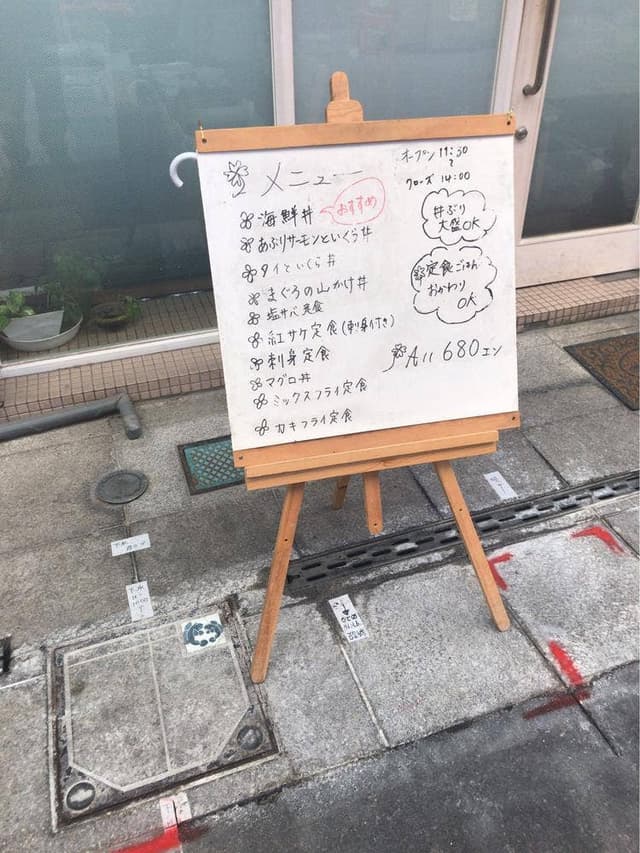 メニュー
海鮮丼 おすすめ
あぶりサーモンといくら丼
タイといくら丼
まぐろの山かけ丼
塩サバ定食
紅サケ定食(刺身付き)
刺身定食
マグロ丼
ミックスフライ定食
カキフライ定食
オープン 11:30
~
クローズ 14:00
丼ぶり
大盛OK
定食ごはん
おかわり
OK
All 680エン